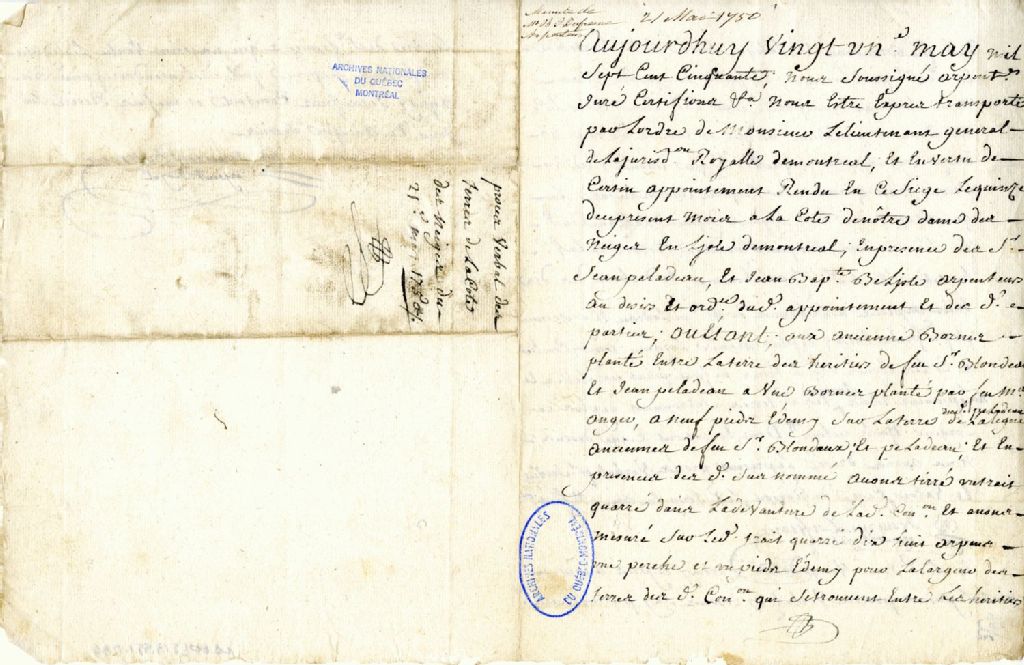 ARCHIVES NATIONALES
DU QUÉBEC
MONTRÉAL
proces Verbal des
terres de La Cote
des Neiges du
21e. may 1750
Minute de
21 Mai 1750
Aujourdhuy Vingt vne. may mil
Sept Cent Cinquante, Nous Soussigné arpentr.
Juré Certifions Nous Estre Exprez transporté
par Lordre de Monsieur Lelieutenant general
de la jurisdon Royalle demontreal, Et En vertu de
Certin appointement Rendu En Ce Siege Lequinze
du present mois a La Cote de nôtre dame des
Neiges En Lisle demontreal, En presence des Sr.
Jean peladeau, Et Jean Bapte. De Lisle arpenteurs
Et ordre dud. appointement Et des d. e
parties, aux ancienne Bornes
planté Entre La terre des heritiers de feu Sr. Blondeau
Et Jean peladeau a Vue Bornes planté par feu Mr.
anger, a neuf pieds Edemy Sur La terre dud. peladeau de La Ligne
anciennes de feu Sr. Blondeaux, Et peLadeau, Et En
presences des d. Sur nommé avons tirré vn trait
quarré dans La devanture de La d. Con. Et avons
mesuré Sur Led. trait quarré dix huit arpens
vne perche et vn pieds Edemy pour La Largeur des
terres des d. Con. qui Setrouvent Entre Les heritiers
ARCHIVES NATIONALES
DU QUÉBEC-MONTRÉAL